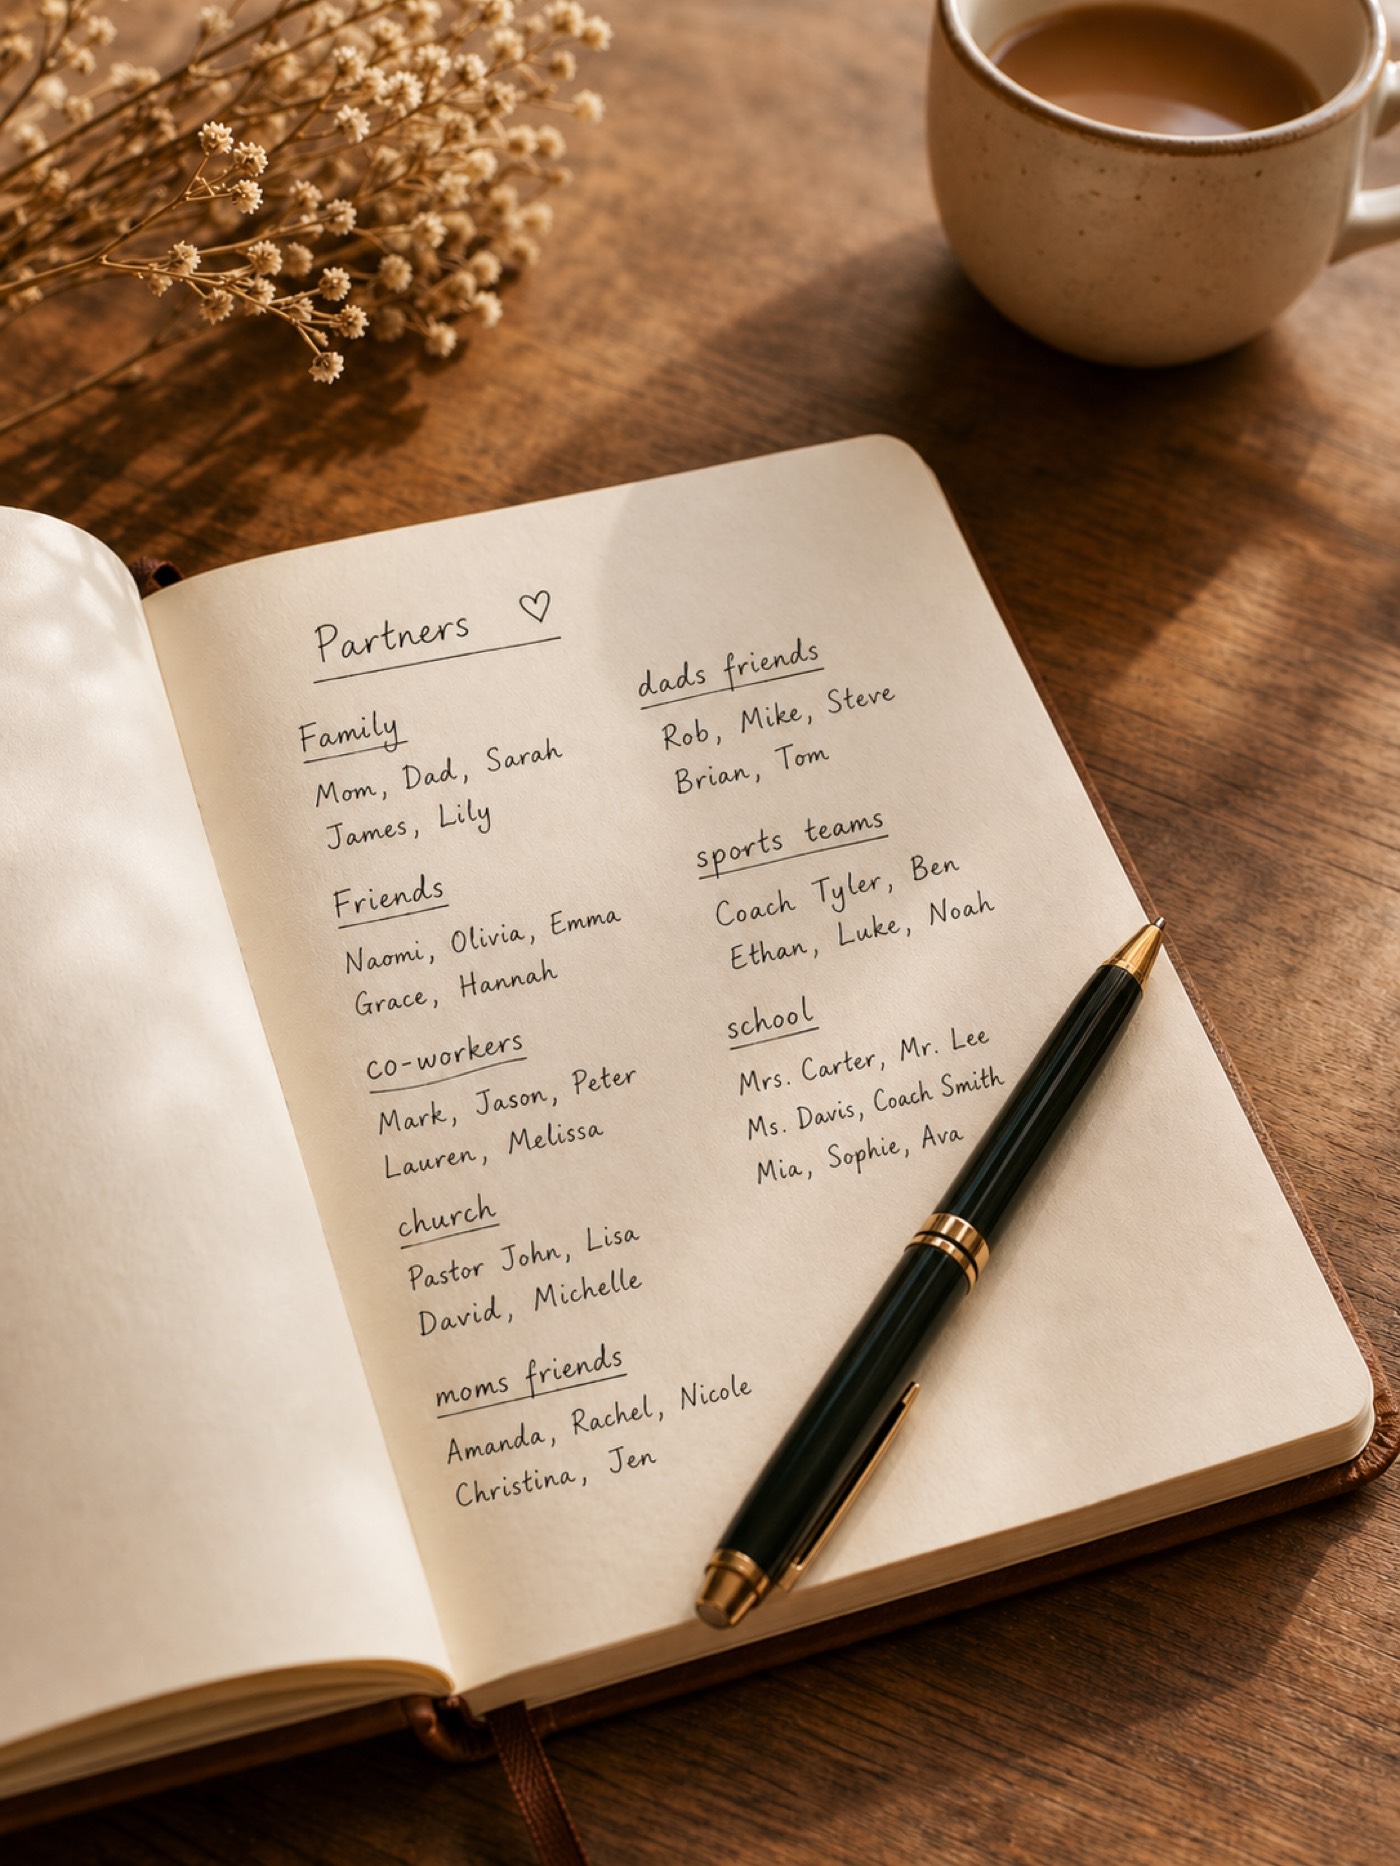 Partners ♡
Family
Mom, Dad, Sarah
James, Lily
Friends
Naomi, Olivia, Emma
Grace, Hannah
co-workers
Mark, Jason, Peter
Lauren, Melissa
church
Pastor John, Lisa
David, Michelle
moms friends
Amanda, Rachel, Nicole
Christina, Jen
dads friends
Rob, Mike, Steve
Brian, Tom
sports teams
Coach Tyler, Ben
Ethan, Luke, Noah
school
Mrs. Carter, Mr. Lee
Ms. Davis, Coach Smith
Mia, Sophie, Ava